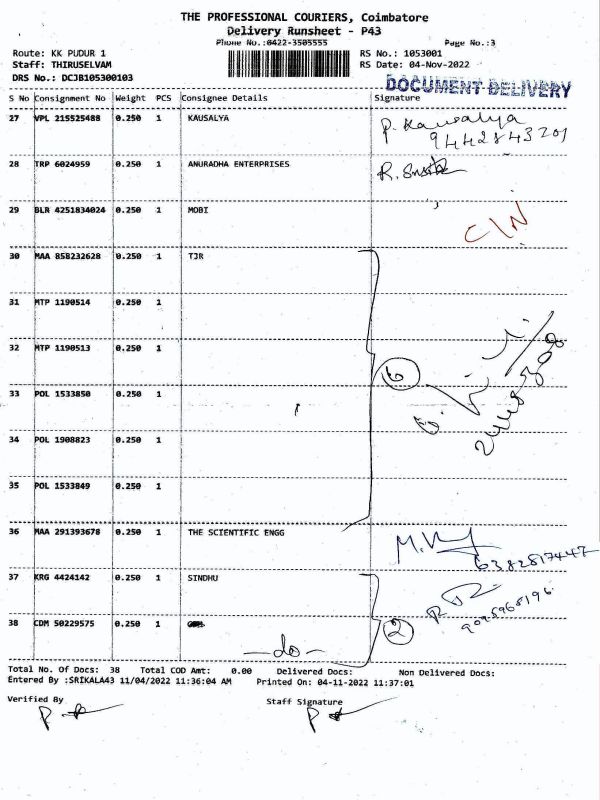 THE PROFESSIONAL COURIERS, Coimbatore
Delivery Runsheet - P43
Phone No.:0422-3505555 Page No.:3
Route: KK PUDUR 1 RS No.: 1053001
Staff: THIRUSELVAM RS Date: 04-Nov-2022
DRS No.: DCJB105300103
DOCUMENT DELIVERY
S No Consignment No Weight PCS Consignee Details Signature
27 VPL 215525488 0.250 1 KAUSALYA P. Kawsalya
9442843201
28 TRP 6024959 0.250 1 ANURADHA ENTERPRISES R.
29 BLR 4251834024 0.250 1 MOBI C/N
30 MAA 858232628 0.250 1 TJR
31 MTP 1190514 0.250 1
32 MTP 1190513 0.250 1
6
33 POL 1533850 0.250 1
34 POL 1908823 0.250 1
35 POL 1533849 0.250 1
36 MAA 291393678 0.250 1 THE SCIENTIFIC ENGG
6382817447
37 KRG 4424142 0.250 1 SINDHU
38 CDM 50229575 0.250 1 2
-do-
Total No. Of Docs: 38 Total COD Amt: 0.00 Delivered Docs: Non Delivered Docs:
Entered By :SRIKALA43 11/04/2022 11:36:04 AM Printed On: 04-11-2022 11:37:01
Verified By Staff Signature